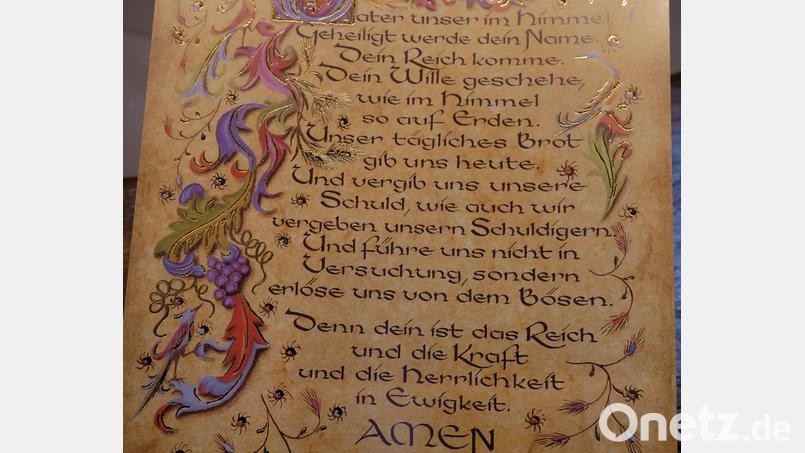 Vater unser im Himmel,
Geheiligt werde dein Name.
Dein Reich komme.
Dein Wille geschehe,
wie im Himmel
so auf Erden.
Unser tägliches Brot
gib uns heute.
Und vergib uns unsere
Schuld, wie auch wir
vergeben unsern Schuldigern.
Und führe uns nicht in
Versuchung, sondern
erlöse uns von dem Bösen.
Denn dein ist das Reich
und die Kraft
und die Herrlichkeit
in Ewigkeit.
AMEN
Onetz.de